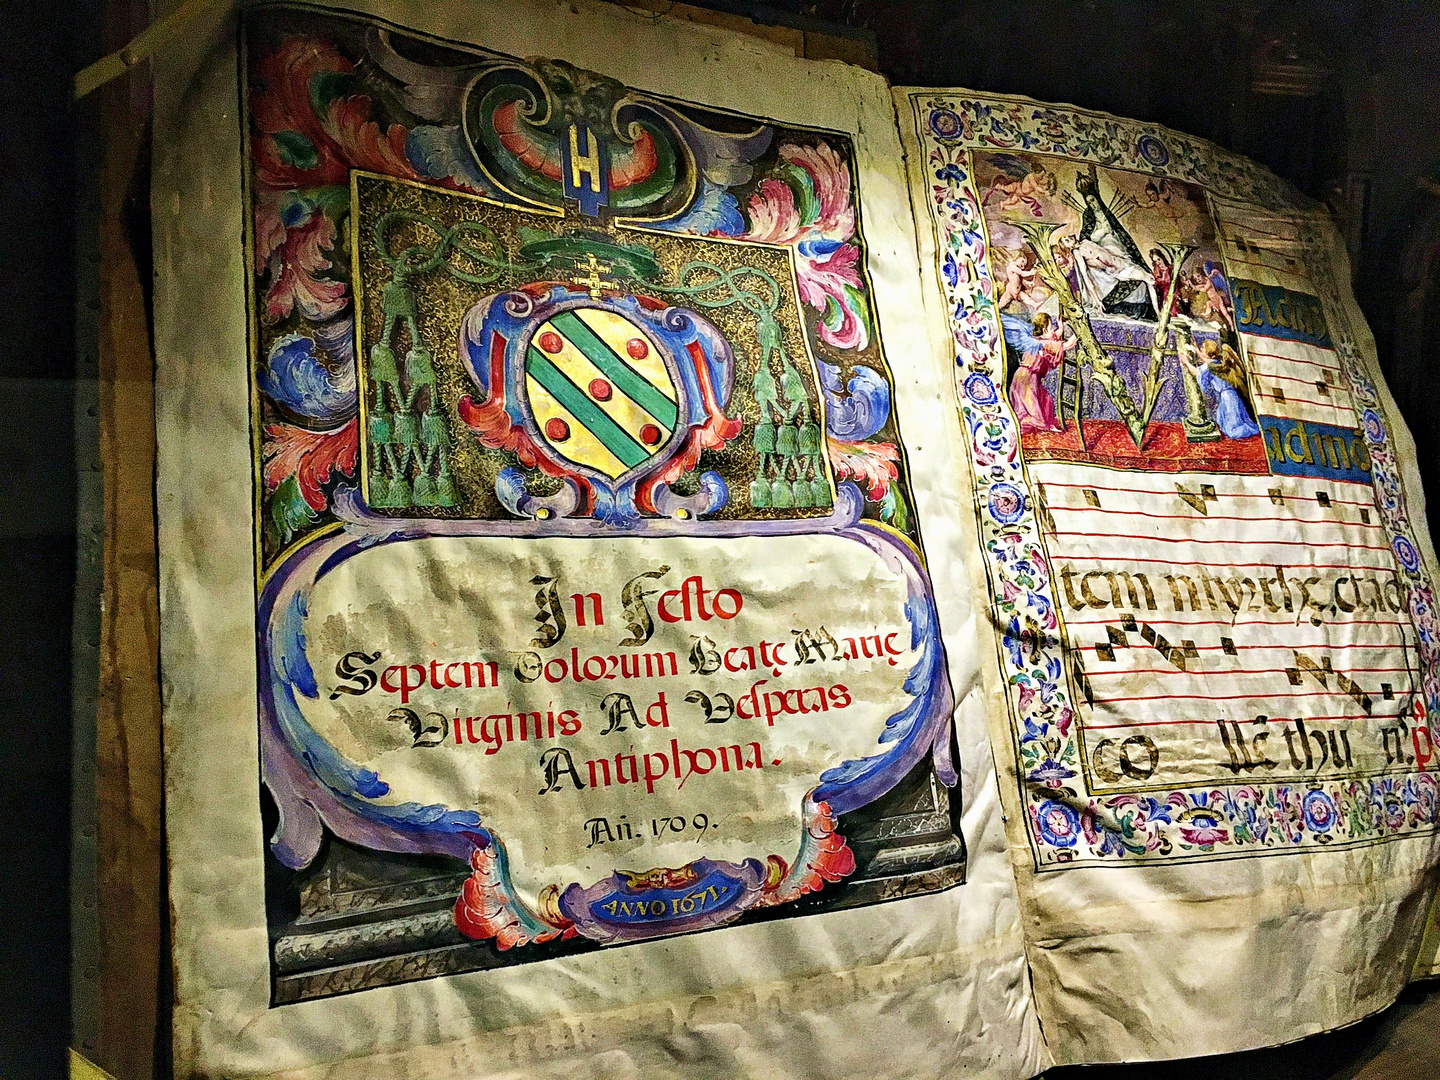 H
In Festo
Septem Dolorum Beatę Marię
Virginis Ad Vesperas
Antiphona.
Añ. 1709.
ANNO 1671.
V
adm
tem myrrhę, et
co
thu